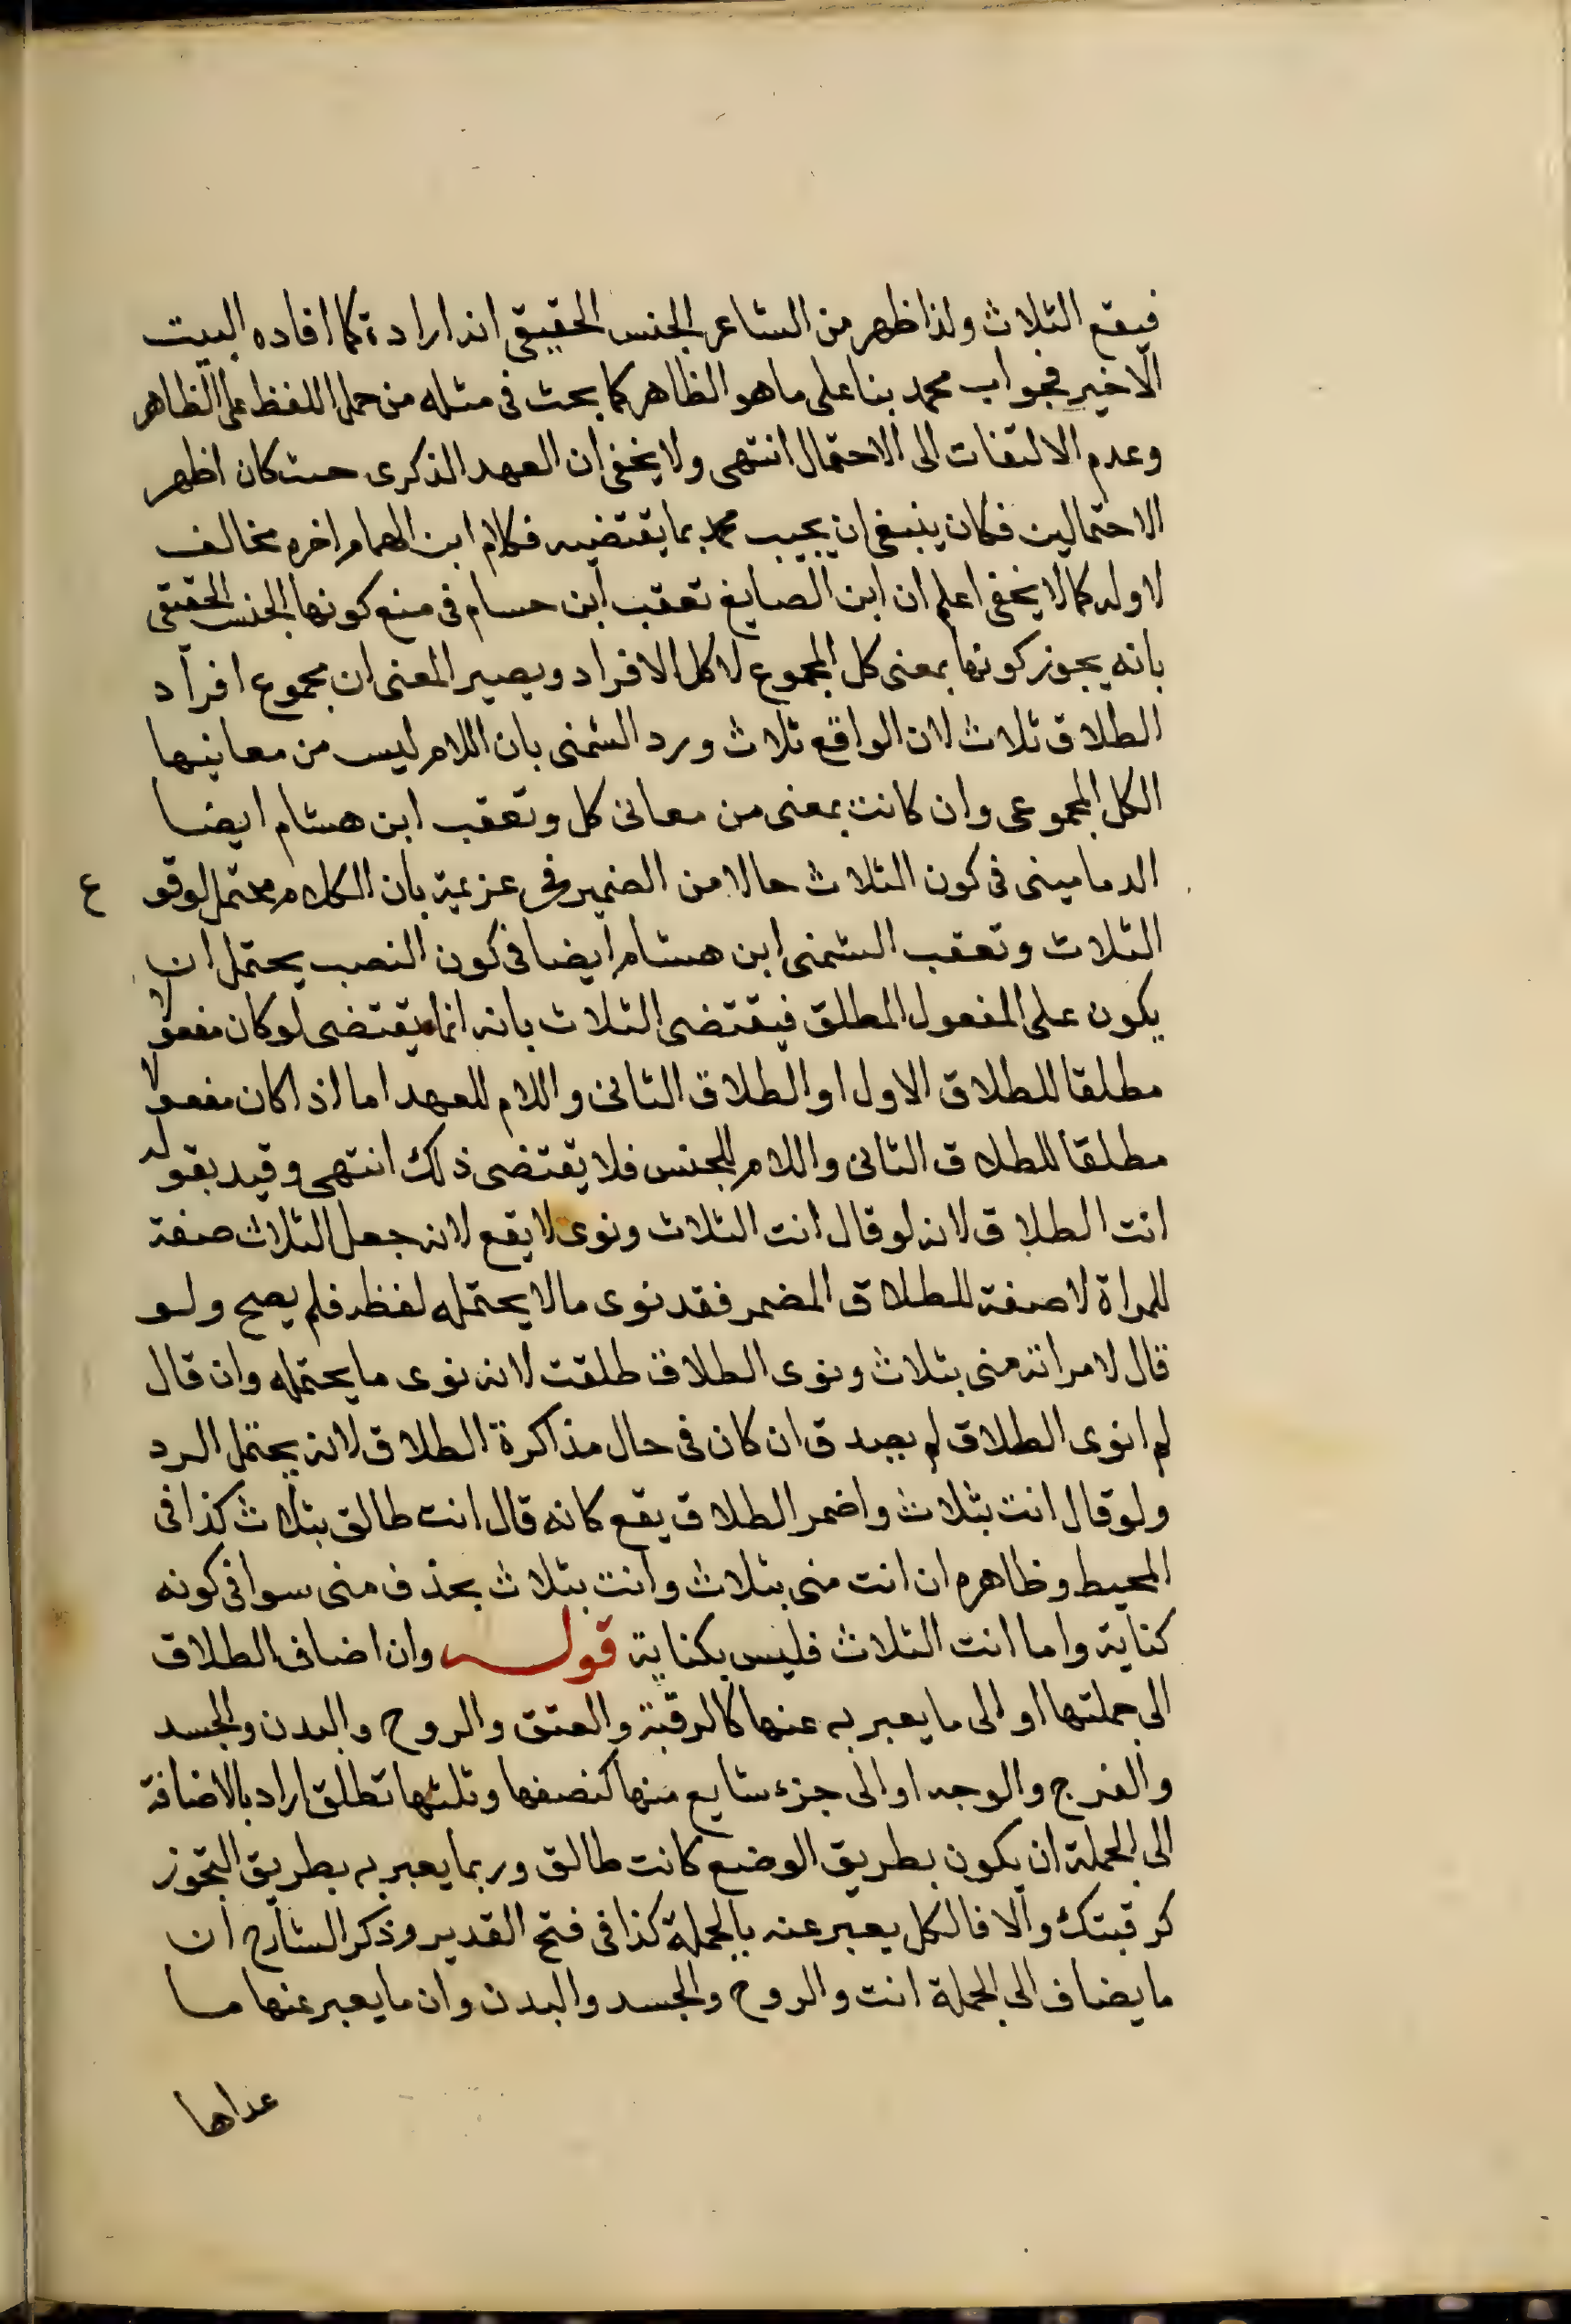 فيقع الثلاث ولذا ظهر من الشاعر الجنس الحقيقى انه اراده كما افاده البيت
الاخير فجواب محمد بناعلى ما هو الظاهر كما بحث فى مثله من حمل اللفظ على الظاهر
وعدم الالتفات الى الاحتمال انتهى ولا يخفى ان العهد الذكرى حيث كان اظهر
الاحتمالين فكان ينبغى ان يجيب محمد بما يقتضيه فكلام ابن الهمام اخره مخالف
لاوله كما لا يخفى اعلم ان ابن الصايغ تعقب ابن حسام فى منع كونها الجنس الحقيقى
بانه يجوز كونها بمعنى كل المجموع لا كل الافراد ويصير المعنى ان مجموع افراد
الطلاق ثلاث لان الواقع ثلاث ورد الشمنى بان اللام ليس من معانيها
الكل المجموعى وان كانت بمعنى من معانى كل وتعقب ابن هشام ايضا
الدمامينى فى كون الثلاث حالا من الضمير فى عزيمة بان الكلام محتمل لوقو ع
الثلاث وتعقب الشمنى ابن هشام ايضا فى كون النصب يحتمل ان
يكون على المفعول المطلق فيقتضى الثلاث بانه انما يقتضى لو كان مفعولا
مطلقا للطلاق الاول او الطلاق الثانى واللام للعهد اما اذا كان مفعولا
مطلقا للطلاق الثانى واللام للجنس فلا يقتضى ذلك انتهى وقيد بقوله
انت الطلاق لانه لو قال انت الثلاث ونوى لا يقع لانه جعل الثلاث صفة
للمراة لا صفة للطلاق المضمر فقد نوى ما لا يحتمله لفظه فلم يصح ولو
قال لامراته منى بثلاث ونوى الطلاق طلقت لانه نوى ما يحتمله وان قال
لم انوى الطلاق لم يصدق ان كان فى حال مذاكرة الطلاق لانه يحتمل الرد
ولو قال انت بثلاث واضمر الطلاق يقع كانه قال انت طالق بثلاث كذا فى
المحيط وظاهره ان انت منى بثلاث وانت بثلاث بحذف منى سوا فى كونه
كناية واما انت الثلاث فليس بكناية قوله وان اضاف الطلاق
الى جملتها او الى ما يعبر به عنها كالرقبة والعتق والروح والبدن والجسد
والفرج والوجه او الى جزء شايع منها كنصفها وثلثها تطلق اراد بالاضافة
الى الجملة ان يكون بطريق الوضع كانت طالق وربما يعبر به بطريق التجوز
كرقبتك والا فالكل يعبر عنه بالجملة كذا فى فتح القدير وذكر الشارح ان
ما يضاف الى الجملة انت والروح والجسد والبدن وان ما يعبر عنها ما
عداها